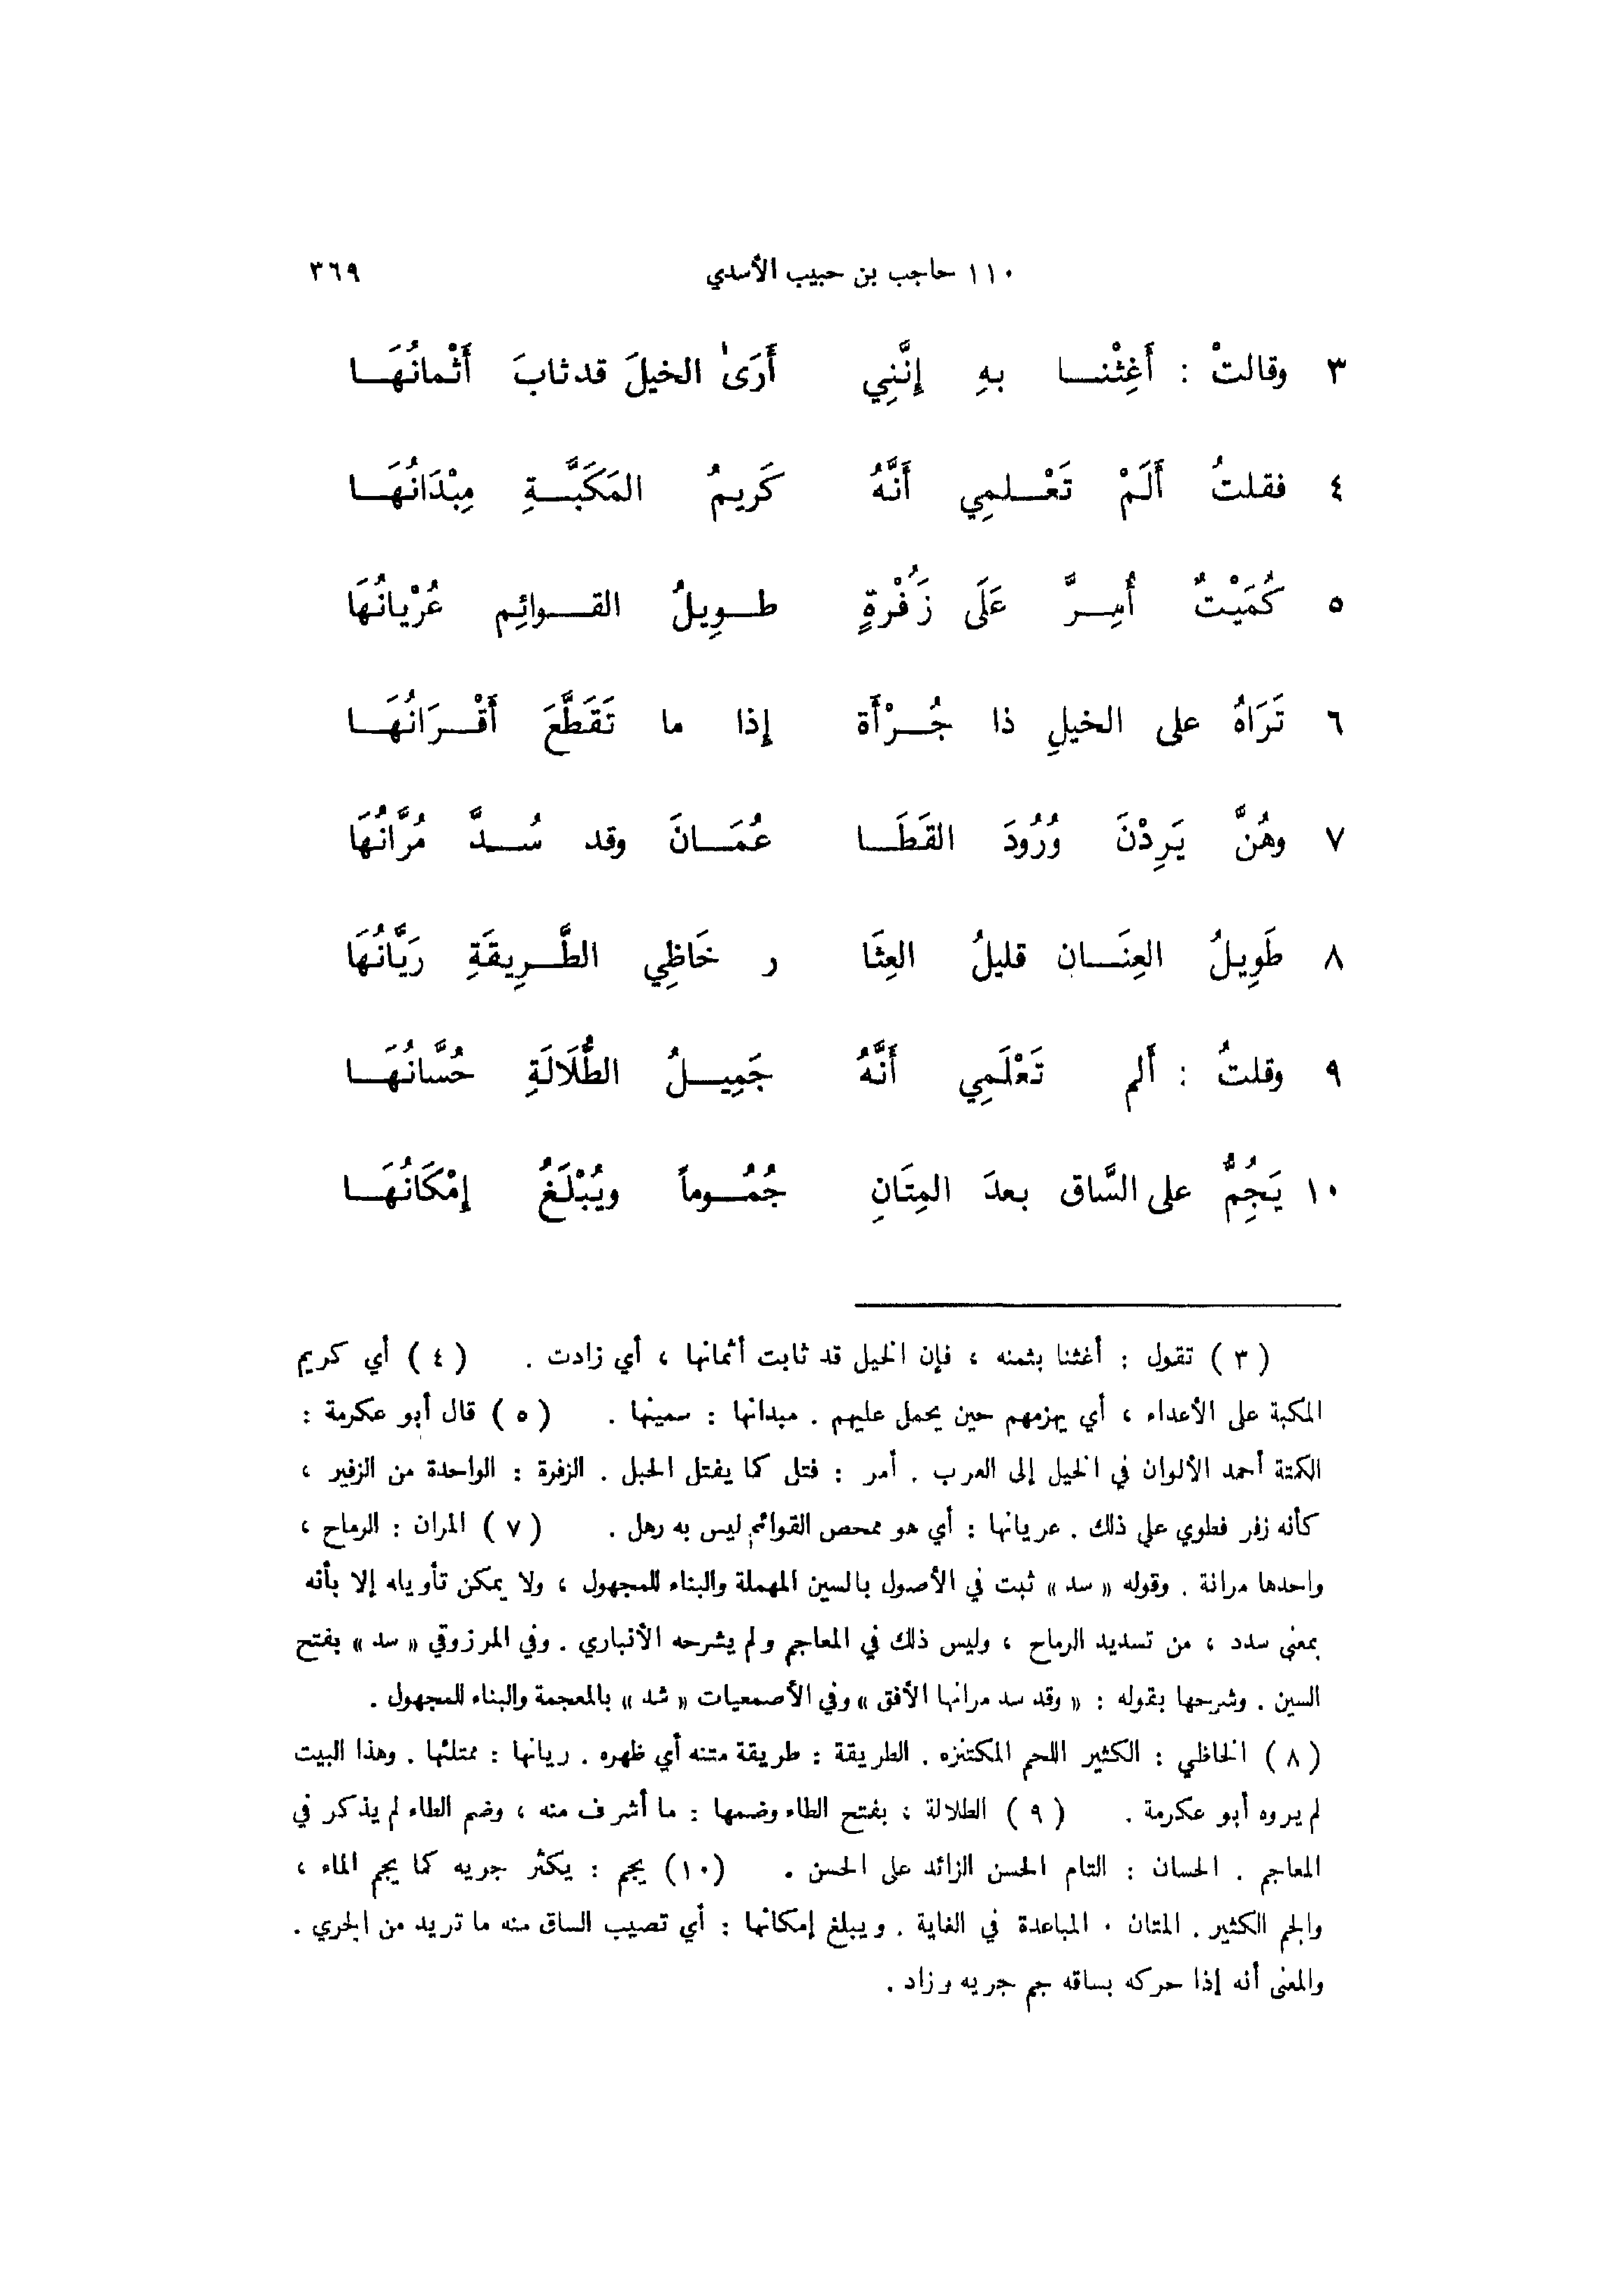 ١١٠ حاجب بن حبيب الأسدي ٣٦٩
٣ وقالتْ : أَغِثْنا بهِ إِنَّنِي أَرَى الخيلَ قد ثابَ أَثْمانُهَا
٤ فقلتُ أَلَمْ تَعْلمِي أَنَّهُ كَريمُ المَكَبَّةِ مِبْدَانُهَا
٥ كُمَيْتٌ أُمِرَّ عَلَى زَُفْرةٍ طويلُ القوائِم عُرْيانُهَا
٦ تَرَاهُ على الخيلِ ذا جُرْأَة إِذا ما تَقَطَّعَ أَقْرَانُهَا
٧ وهُنَّ يَرِدْنَ وُرُودَ القَطَا عُمَانَ وقد سُدَّ مُرَّانُهَا
٨ طَوِيلُ العِنَانِ قليلُ العِثَا ر خَاظِي الطَّرِيقَةِ رَيَّانُهَا
٩ وقلتُ : أَلم تَعْلَمِي أَنَّهُ جَمِيلُ الطُّلَالَةِ حُسَّانُهَا
١٠ يَجُِمُّ على السَّاق بعدَ المِتَانِ جُمُوماً ويُبْلَغُ إِمْكَانُهَا
( ٣ ) تقول : أغثنا بثمنه ، فإن الخيل قد ثابت أثمانها ، أي زادت . ( ٤ ) أي كريم
المكبة على الأعداء ، أي يهزمهم حين يحمل عليهم . مبدانها : سمينها . ( ٥ ) قال أبو عكرمة :
الكمتة أحمد الألوان في الخيل إلى العرب . أمر : فتل كما يفتل الحبل . الزفرة : الواحدة من الزفير ،
كأنه زفر فطوي على ذلك . عريانها : أي هو ممحص القوائم ليس به رهل . ( ٧ ) المران : الرماح ،
واحدها مرانة . وقوله « سد » ثبت في الأصول بالسين المهملة والبناء للمجهول ، ولا يمكن تأويله إلا بأنه
بمعنى سدد ، من تسديد الرماح ، وليس ذلك في المعاجم ولم يشرحه الأنباري . وفي المرزوقي « سد » بفتح
السين . وشرحها بقوله : « وقد سد مرانها الأفق » وفي الأصمعيات « شد » بالمعجمة والبناء للمجهول .
( ٨ ) الخاظي : الكثير اللحم المكتنزه . الطريقة : طريقة متنه أي ظهره . ريانها : ممتلئها . وهذا البيت
لم يروه أبو عكرمة . ( ٩ ) الطلالة ، بفتح الطاء وضمها : ما أشرف منه ، وضم الطاء لم يذكر في
المعاجم . الحسان : التام الحسن الزائد على الحسن . (١٠) يجم : يكثر جريه كما يجم الماء ،
والجم الكثير . المتان . المباعدة في الغاية . ويبلغ إمكانها : أي تصيب الساق منه ما تريد من الجري .
والمعنى أنه إذا حركه بساقه جم جريه وزاد .